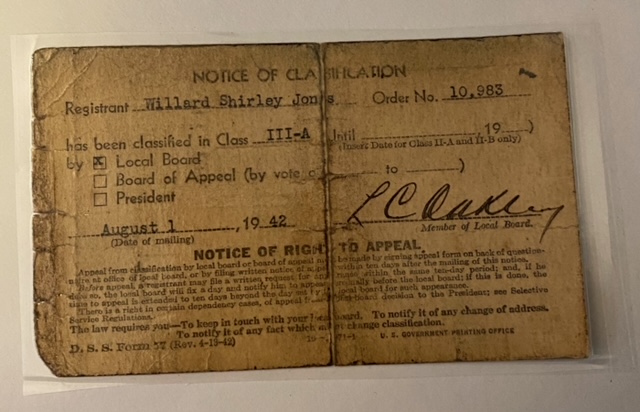 NOTICE OF CLASSIFICATION
Registrant Willard Shirley Jones Order No. 10,983
has been classified in Class III-A Until , 19 )
(Insert Date for Class II-A and II-B only)
by ☒ Local Board
☐ Board of Appeal (by vote to )
☐ President
August 1, 1942 L C Oakley
(Date of mailing) Member of Local Board.
NOTICE OF RIGHT TO APPEAL
Appeal from classification by local board or board of appeal be made by signing appeal form on back of question-
naire at office of local board, or by filing written notice of within ten days after the mailing of this notice.
Before appeal, a registrant may file a written within the same ten-day period; and, if he
does so, the local board will fix a day and notify him to before the local board; if this is done, the
time to appeal is extended to ten days beyond the day for such appearance.
There is a right in certain dependency cases, of appeal board decision to the President; see Selective
Service Regulations.
The law requires you—To keep in touch with your board. To notify it of any change of address.
To notify it of any fact which change classification.
D. S. S. Form 57 (Rev. 4-13-42) U. S. GOVERNMENT PRINTING OFFICE